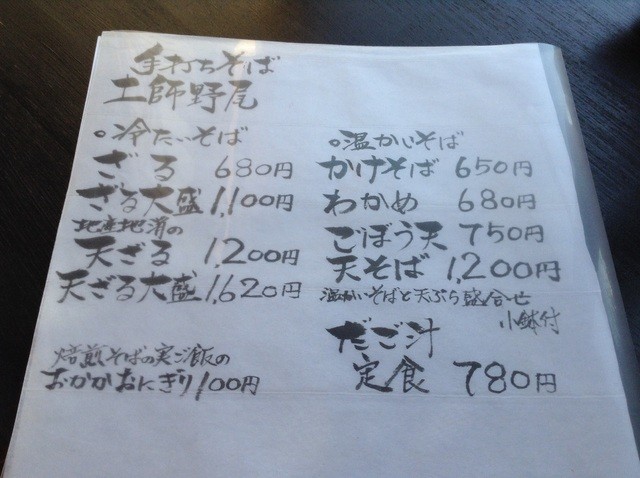 手打ちそば
土師野尾
○冷たいそば
ざる 680円
ざる大盛 1,100円
地産地消の
天ざる 1,200円
天ざる大盛 1,620円
焙煎そばの実ご飯の
おかかおにぎり 100円
○温かいそば
かけそば 650円
わかめ 680円
ごぼう天 750円
天そば 1,200円
温かいそばと天ぷら盛合せ
小鉢付
だご汁
定食 780円